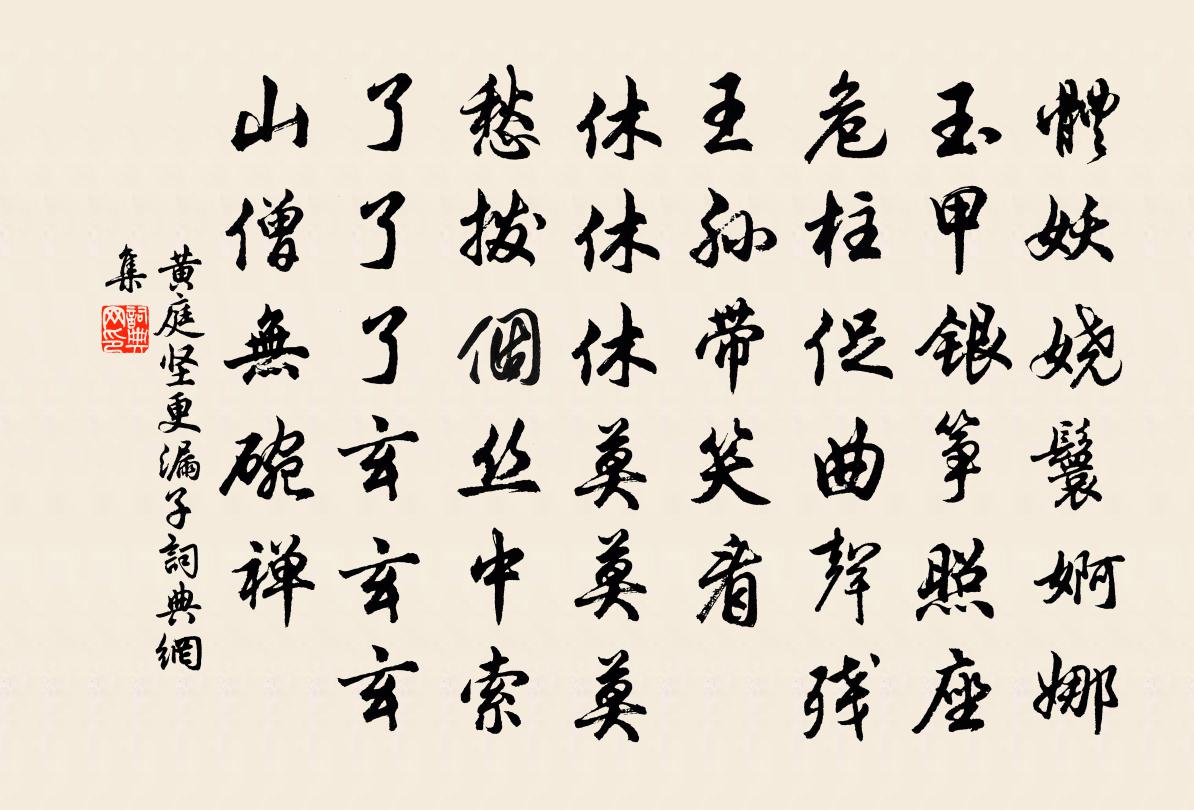 體妖娆鬟婀娜
玉甲銀箏照座
危柱促曲聲残
王孫带笑看
休休休莫莫莫
愁拨個丝中索
了了了玄玄玄
山僧無碗禅
黄庭坚更漏子詞典網
集
詞典网印